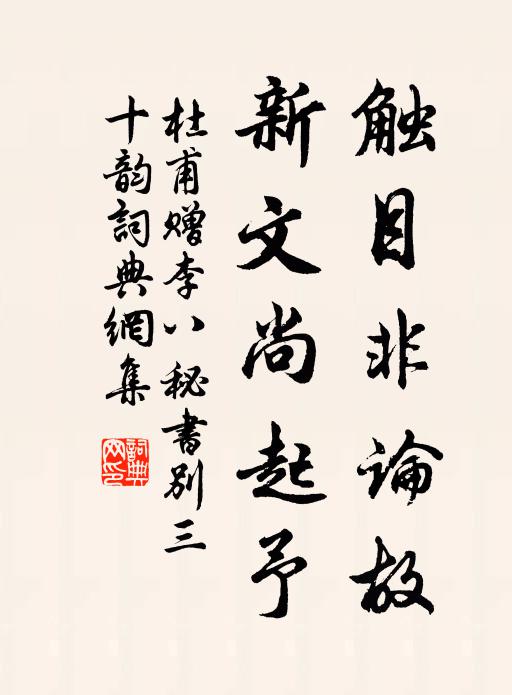 触目非論故
新文尚起予
杜甫赠李八秘書别三
十韵詞典網集
詞典
网印